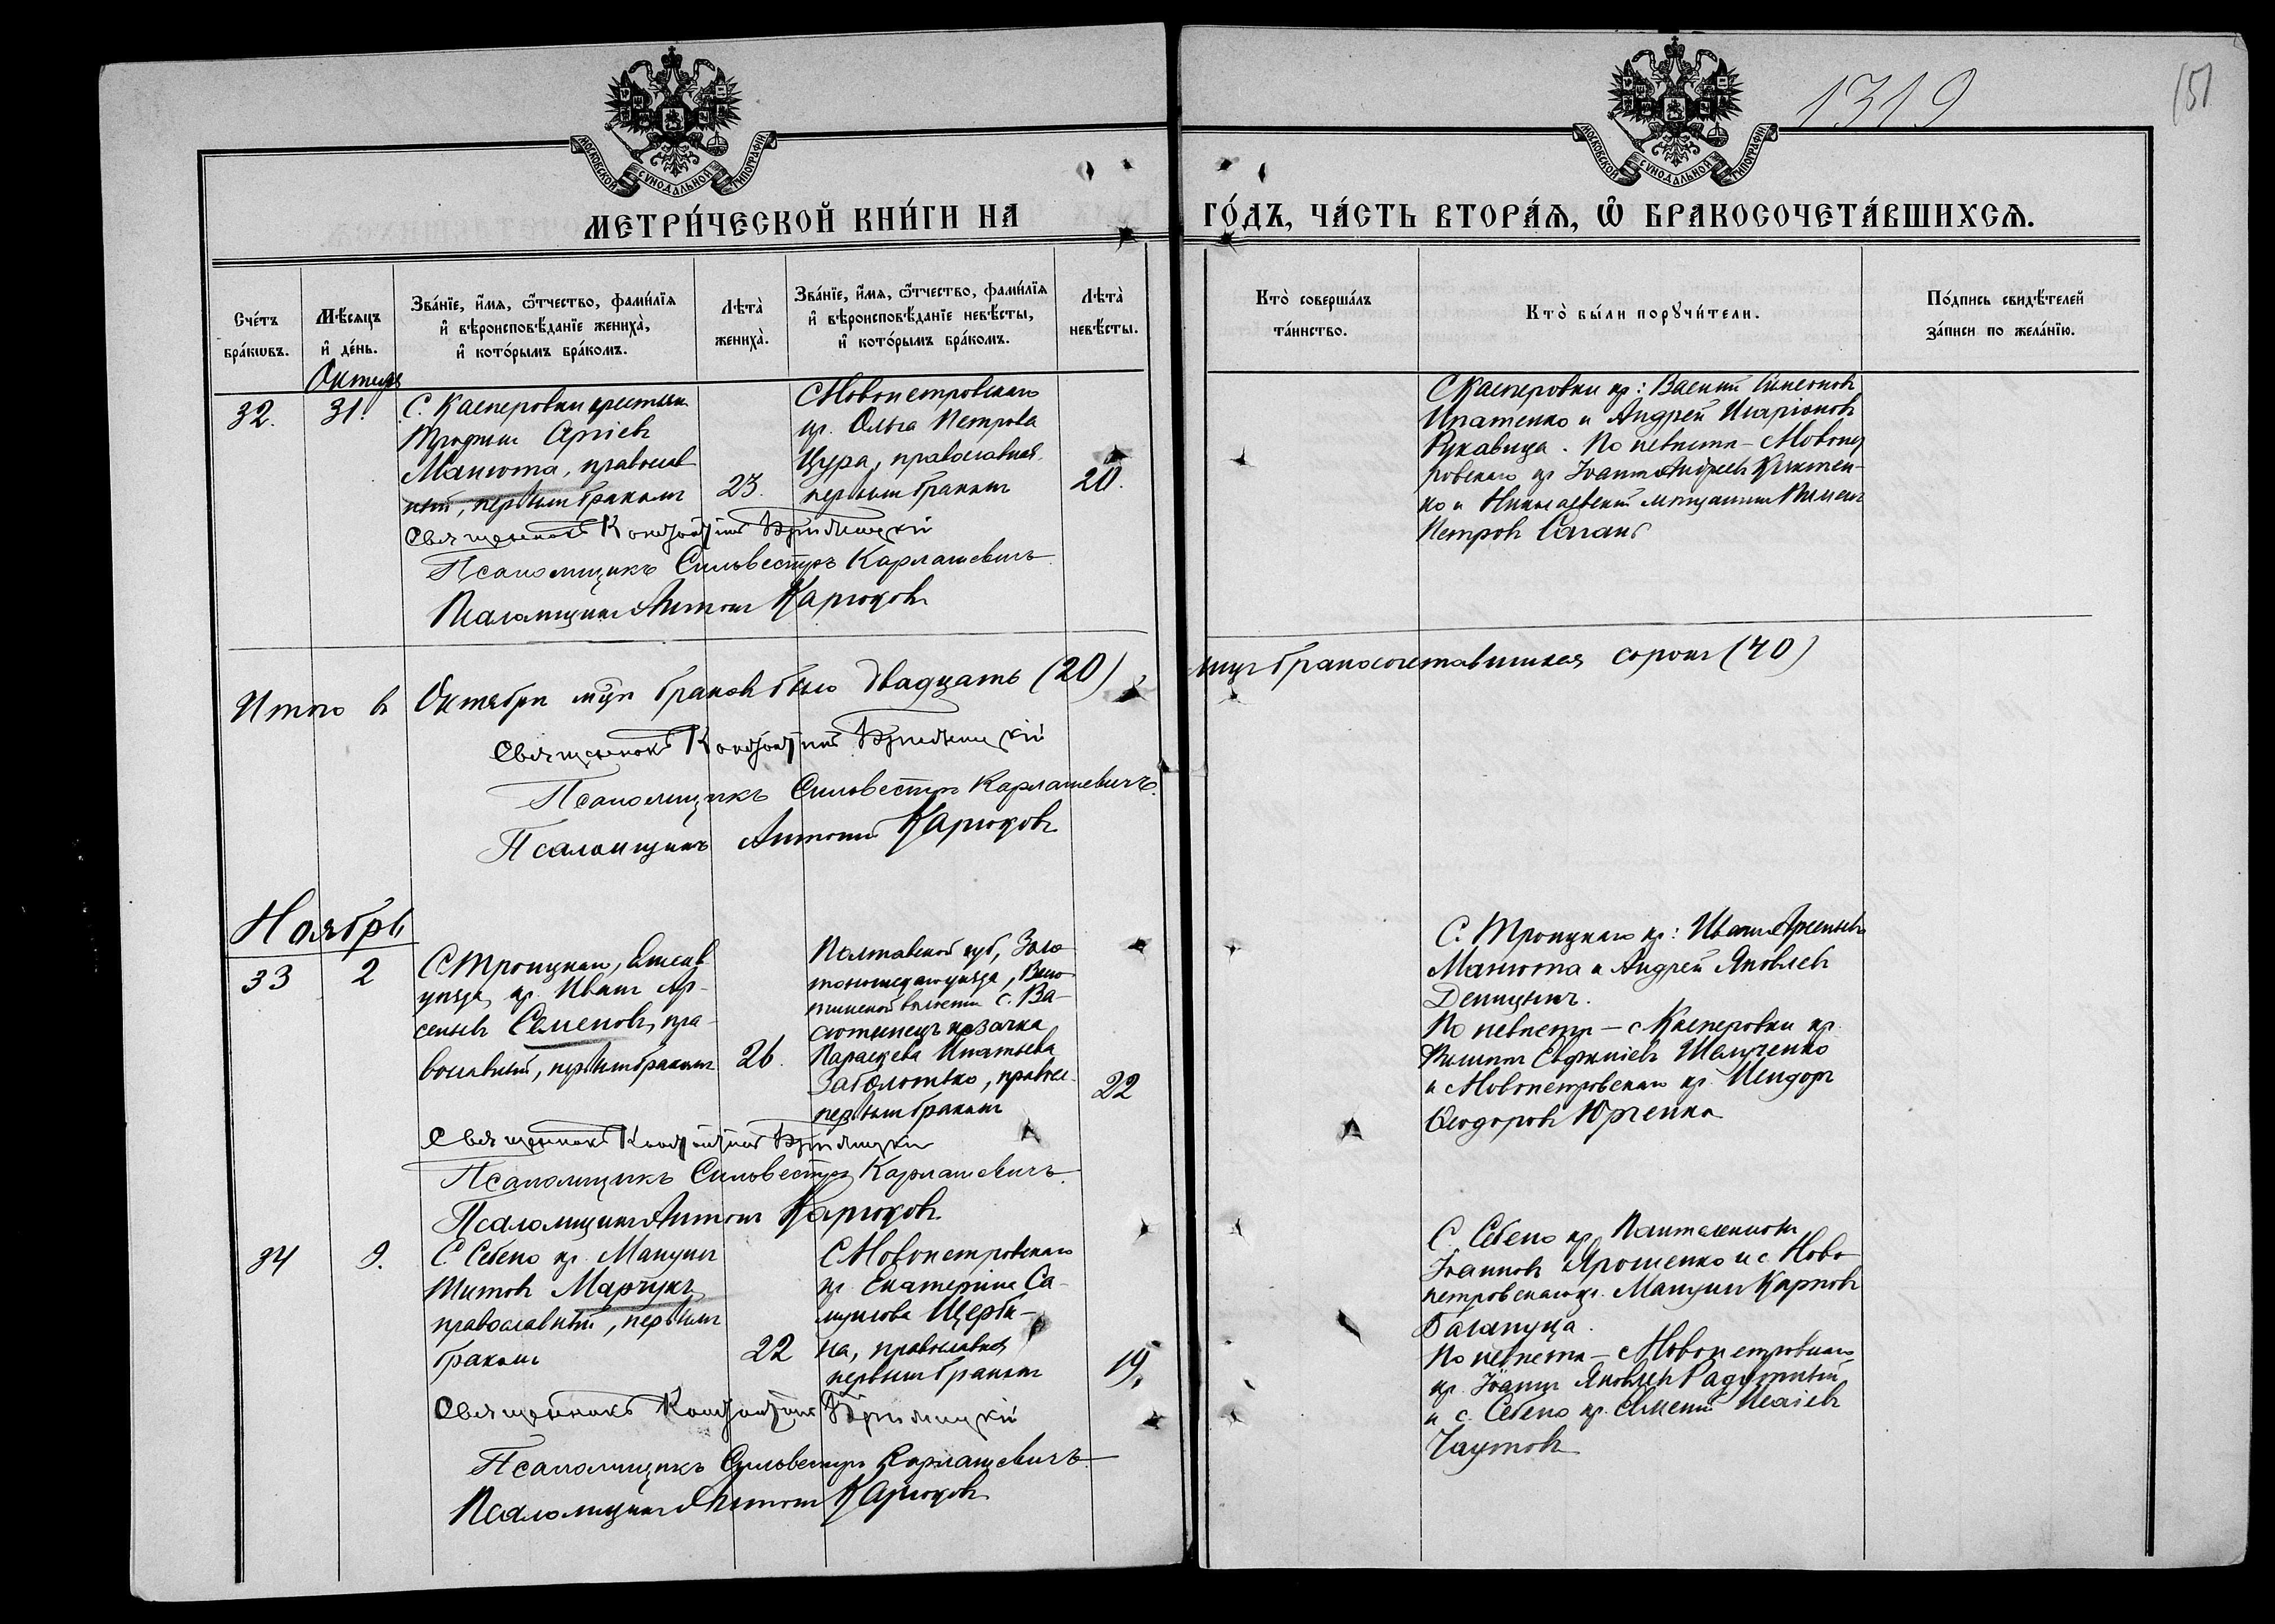 1319
151
МОСКОВСКОЙ СѴНОДАЛЬНОЙ ТИПОГРАФІИ
МОСКОВСКОЙ СѴНОДАЛЬНОЙ ТИПОГРАФІИ
МЕТРИ́ЧЕСКОЙ КНИ́ГИ НА
ГО́ДЪ, ЧА́СТЬ ВТОРА́Я, Ѡ БРАКОСОЧЕТА́ВШИХСЯ.
Сче́тъ бра́кωвъ.
Мѣ́сяцъ и҆ де́нь.
Зва́нїе, и҆́мя, ѻ҆́тчество, фами́лїя и҆ вѣроисповѣ́данїе жениха̀, и҆ кото́рымъ бра́комъ.
Лѣта̀ жениха̀.
Зва́нїе, и҆́мя, ѻ҆́тчество, фами́лїя и҆ вѣроисповѣ́данїе невѣ́сты, и҆ кото́рымъ бра́комъ.
Лѣта̀ невѣ́сты.
Кто̀ соверша́лъ та́инство.
Кто̀ бы́ли порꙋчи́тели.
По́дпись свидѣ́телей за́писи по жела́нїю.
Октябрь
32.
31.
С. Касперовки крестьян
Трофим Сергіевъ
Манюта, православ
ный, первымъ бракомъ
23.
С Новопетровскаго
кр. Ольга Петрова
Цура, православная
первымъ бракомъ
20.
С Касперовки кр: Василій Симеоновъ
Ипатенко и Андрей Иларіоновъ
Рукавица. По невѣстѣ – Новопет
ровскаго кр Іоаннъ Андреевъ Никитен-
ко и Николаевскій мѣщанинъ
Петровъ Саганъ
Священникъ Константинъ
Псаломщикъ Сильвестръ Карлашевичъ
Псаломщикъ Антоній Карюковъ
Итого въ Октябрѣ мцѣ браковъ было двадцать (20)
лицъ бракосочетавшихся сорокъ (40)
Священникъ Константинъ
Псаломщикъ Сильвестръ Карлашевичъ.
Псаломщикъ Антоній Карюковъ
Ноябрь
33
2
С Троицкаго,
уѣзда, кр. Иванъ Ар-
сеньевъ Семеновъ, пра-
вославный, первымъ бракомъ
26.
Полтавской губ, Золо
тоношскаго уѣзда,
волости с. Ва-
сютинецъ козачка
Параскева Игнатьева
Заболотько, правосл.
первымъ бракомъ
22
С. Троицкаго кр: Иванъ Арсеньевъ
Манюта и Андрей Яковлевъ
Деницынъ.
По невѣстѣ – с Касперовки кр.
Филиппъ Евфиміевъ Шелученко
и Новопетровскаго кр. Исидоръ
Ѳеодоровъ Юрченко
Священникъ Константинъ
Псаломщикъ Сильвестръ Карлашевичъ.
Псаломщикъ Антоній Карюковъ
34
9.
С. Себено кр. Мануилъ
Титовъ Марчукъ,
православный, первымъ
бракомъ
22
С Новопетровскаго
кр. Екатерина Са-
муилова Щерби-
на, православная
первымъ бракомъ
19.
С. Себено кр. Пантелеимонъ
Іоанновъ Ярошенко и с Ново
петровскаго кр. Мануилъ Карповъ
Багапуца.
По невѣстѣ – Новопетровскаго
кр. Іоаннъ Яковлевъ
и с. Себено кр. Симеонъ Исаіевъ
Чаутовъ
Священникъ Константинъ
Псаломщикъ Сильвестръ Карлашевичъ
Псаломщикъ Антоній Карюковъ